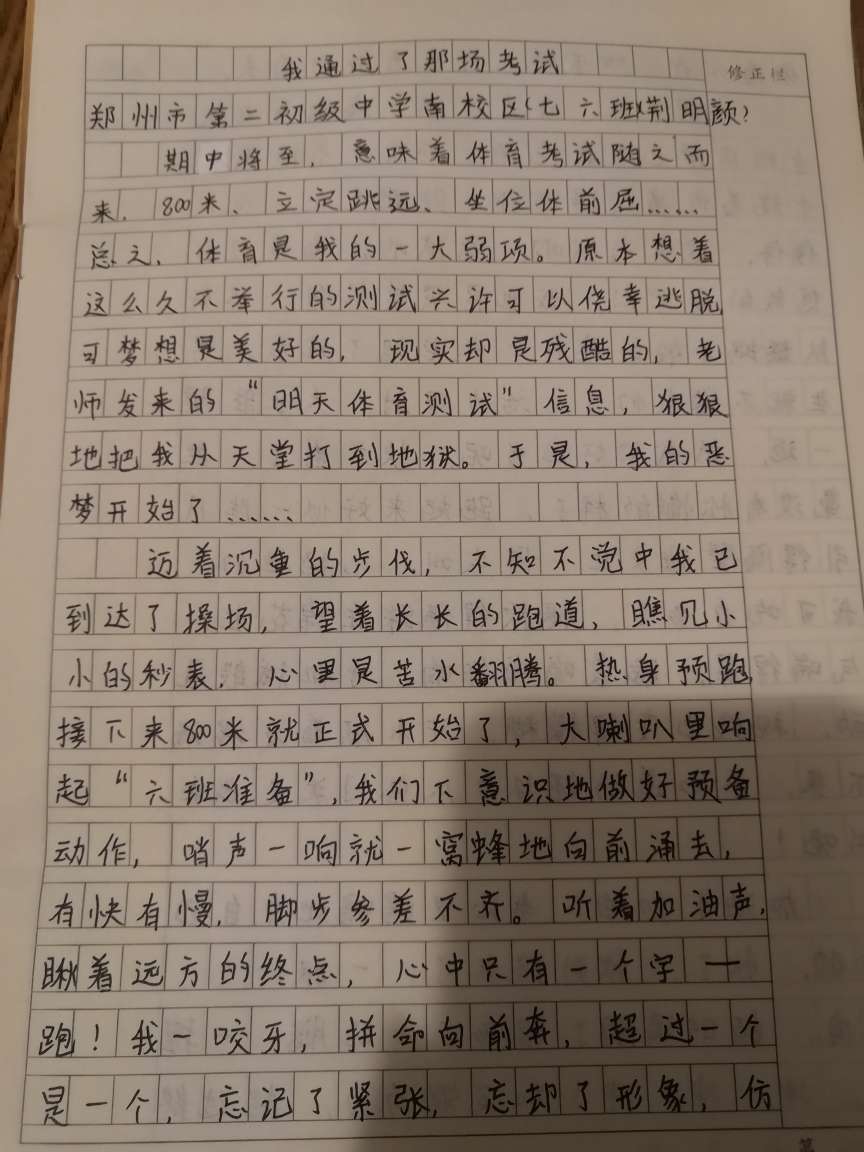 我通过了那场考试
修正栏
郑州市第二初级中学南校区(七六班)荆明颜
期中将至，意味着体育考试随之而
来，800米、立定跳远、坐位体前屈……
总之，体育是我的一大弱项。原本想着
这么久不举行的测试兴许可以侥幸逃脱
可梦想是美好的，现实却是残酷的，老
师发来的“明天体育测试”信息，狠狠
地把我从天堂打到地狱。于是，我的恶
梦开始了……
迈着沉重的步伐，不知不觉中我已
到达了操场，望着长长的跑道，瞧见小
小的秒表，心里是苦水翻腾。热身预跑，
接下来800米就正式开始了，大喇叭里响
起“六班准备”，我们下意识地做好预备
动作，哨声一响就一窝蜂地向前涌去，
有快有慢，脚步参差不齐。听着加油声，
瞅着远方的终点，心中只有一个字——
跑！我一咬牙，拼命向前奔，超过一个
是一个，忘记了紧张，忘却了形象，仿
第